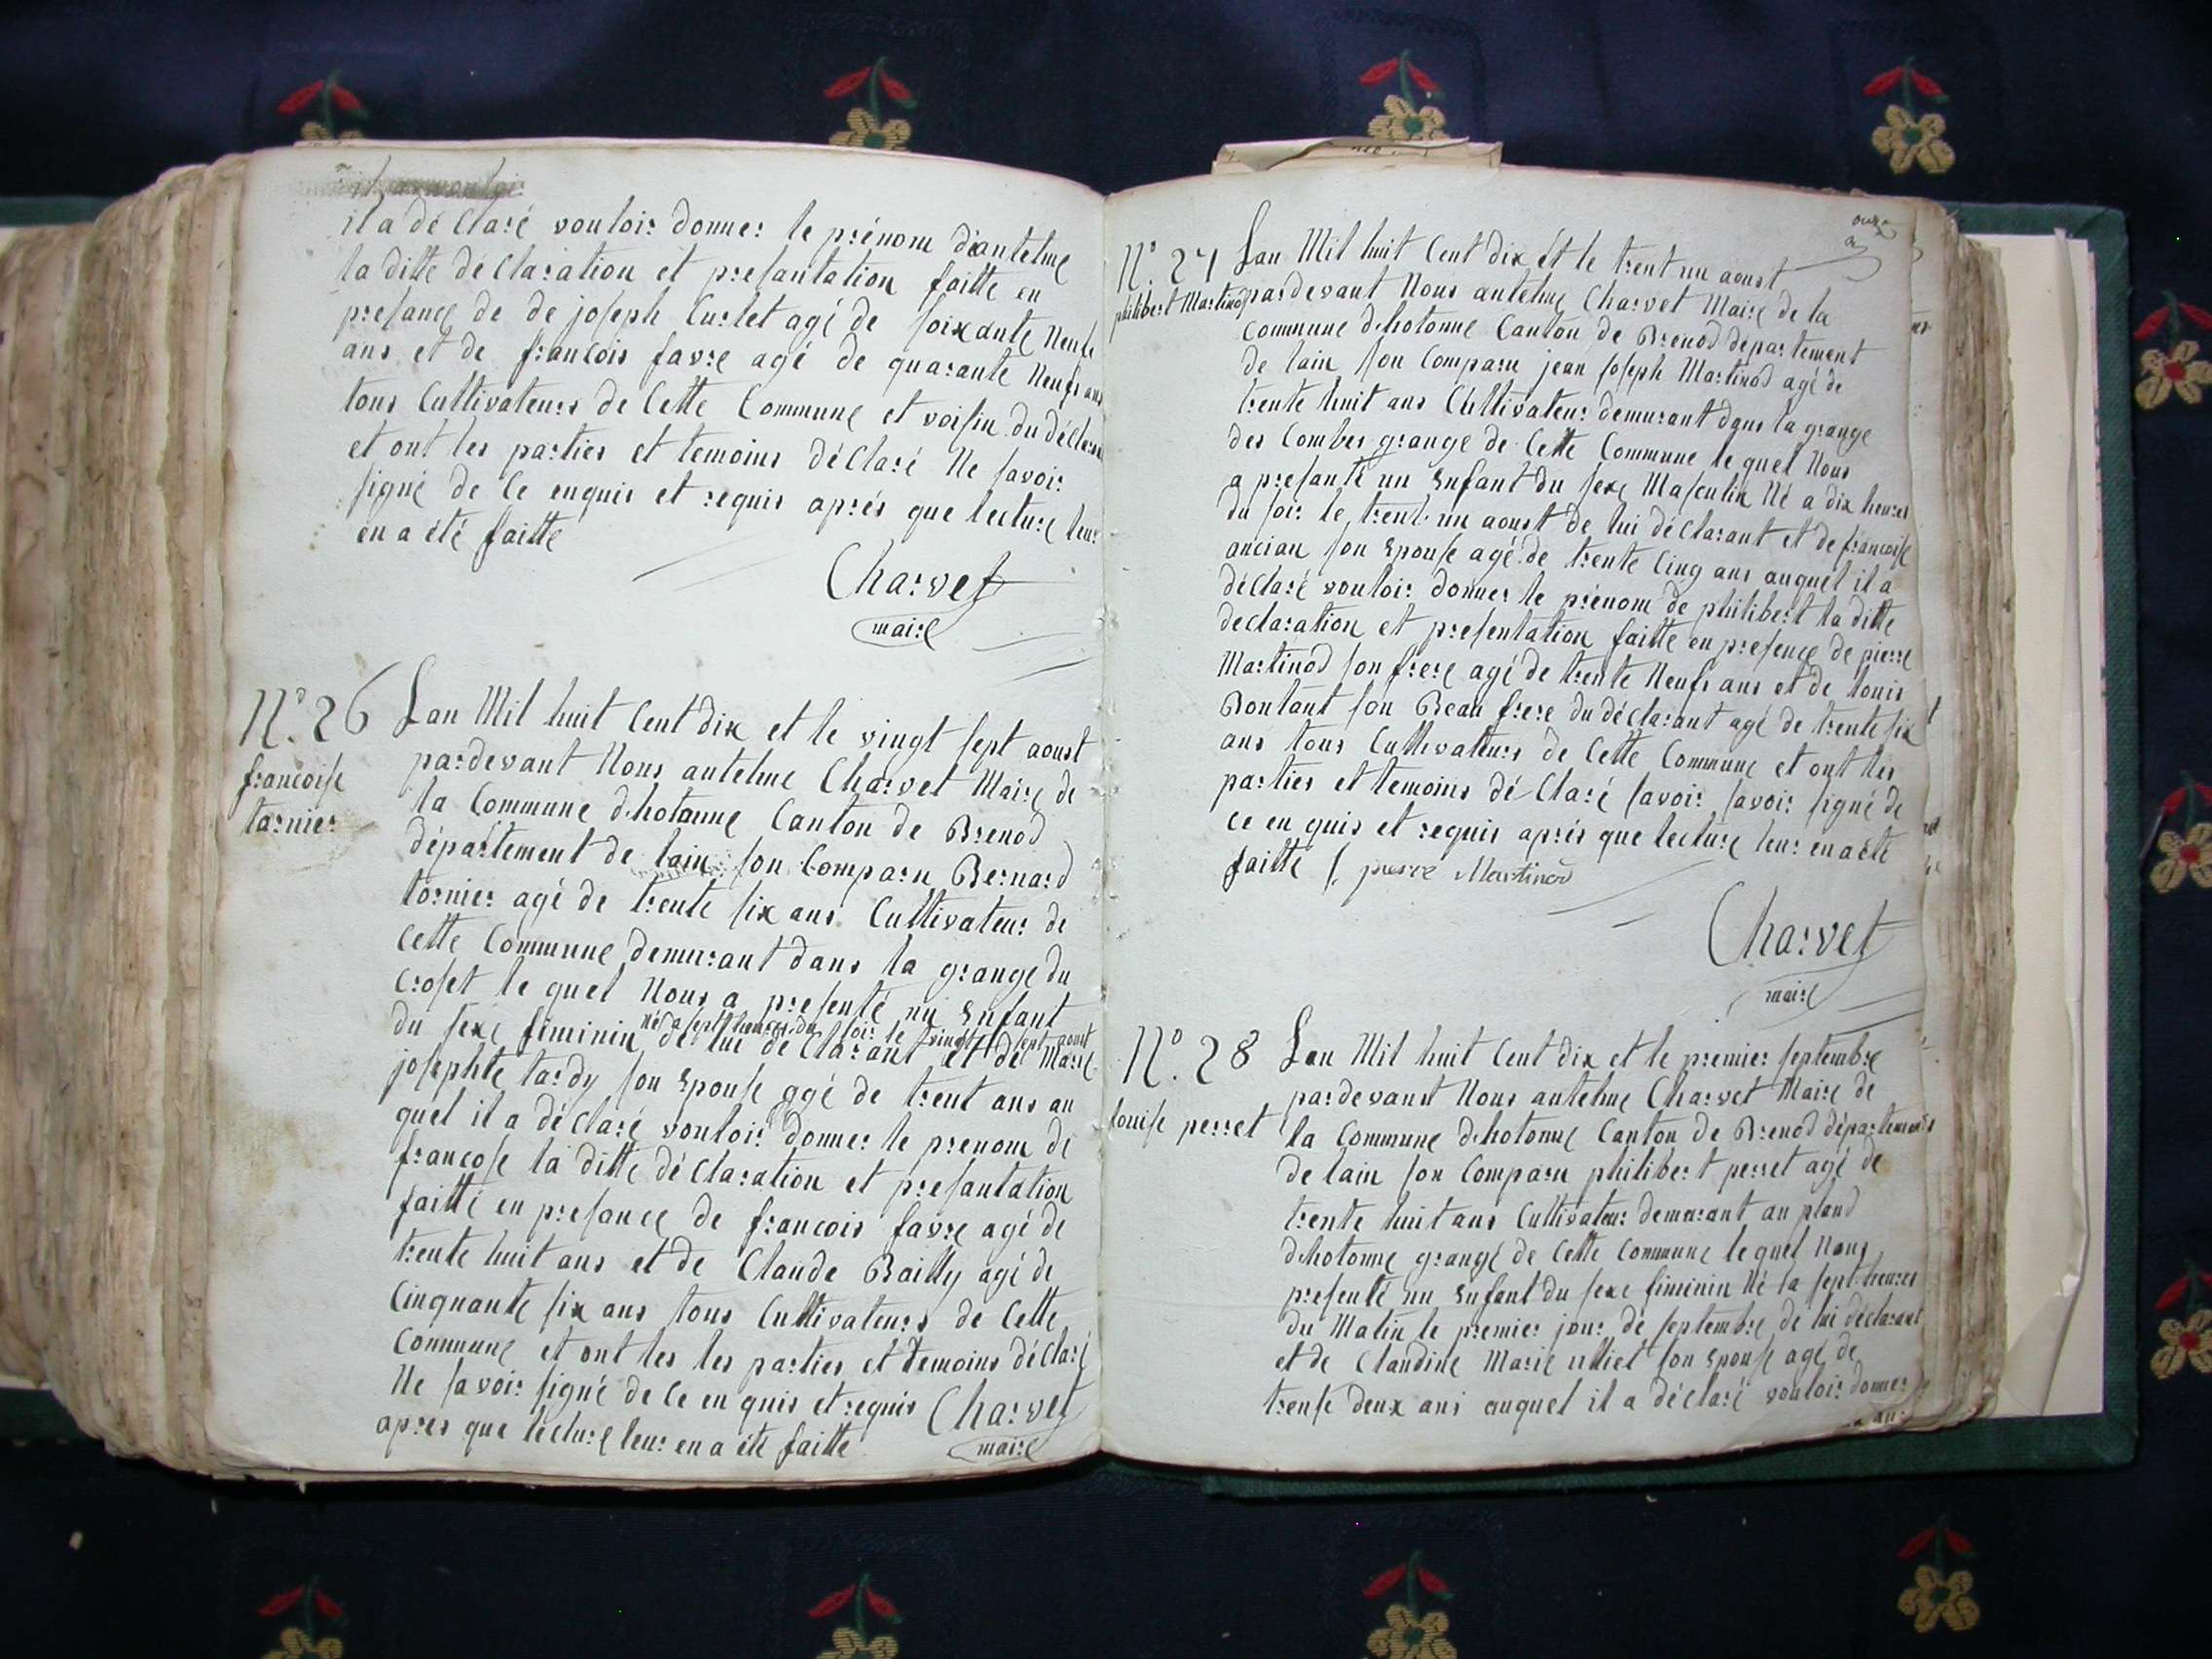 il a dé claré vouloir donner le prénom d'antelme
la ditte déclaration et presantation faitte en
presance de de joseph Curlet agé de soixante Neufs
ans et de francois favre agé de quarante Neufs ans
tous Cultivateurs de Cette Commune et voisin du déclarant
et ont les parties et temoins déclaré Ne savoir
signé de Ce enquis et requis aprés que lecture leur
en a été faitte
Charvet
maire
N.° 26
francoise
tarnier
Lan Mil huit Cent dix et le vingt sept aoust
pardevant Nous antelme Charvet Maire de
la Commune d.hotonne Canton de Brenod
département de lain son Comparu Bernard
tornier agé de trente six ans Cultivateur de
Cette Commune demurant dans la grange du
croset le quel Nous a presenté un Enfant
du sexe fiminin né a sept heures du soir le vingt sept aoust
de lui déclarant et de Marie
josephte tardy son Epouse agé de trent ans au
quel il a déclaré vouloir donner le prenom de
francose la ditte déclaration et presantation
faitte en presance de francois favre agé de
trente huit ans et de Claude Bailly agé de
Cinquante six ans tous Cultivateurs de Cette
Commune et ont les les parties et temoins déclaré
Ne savoir signé de Ce en quis et requis
apres que lecture leur en a été faitte
Charvet
maire
onze
N.° 27
philibert Martinod
Lan Mil huit Cent dix et le trent un aoust
pardevant Nous antelme Charvet Maire de la
Commune d.hotonne Canton de Brenod departement
de lain son Comparu jean joseph Martinod agé de
trente huit ans Cultivateur demurant dans la grange
des Combes grange de Cette Commune le quel Nous
a presanté un Enfant du sexe Masculin Né a dix heures
du soir le trent un aoust de lui déclarant et de francoise
ancian son Epouse agé de trente Cinq ans auquel il a
déclaré vouloir donner le prénom de philibert la ditte
declaration et presentation faitte en presence de pierre
Martinod son frere agé de trente Neufs ans et de louis
Bontant son Beau frere du déclarant agé de trente six
ans tous Cultivateurs de Cette Commune et ont les
parties et temoins dé Claré savoir savoir signé de
ce en quis et requis aprés que lecture leur en a été
faitte /. pierre Martinod
Charvet
maire
N.° 28
louise perret
Lan Mil huit Cent dix et le premier septembre
pardevant Nous antelme Charvet Maire de
la Commune d.hotonne Canton de Brenod département
de lain son Comparu philibert perret agé de
trente huit ans Cultivateur demurant au pland
d.hotonne grange de Cette Commune le quel Nous
presenté un Enfant du sexe fiminin Né la sept heures
du Matin le premier jour de septembre de lui déclarant
et de Claudine Marie ulliet son Epouse agé de
trense deux ans auquel il a déclaré vouloir donner